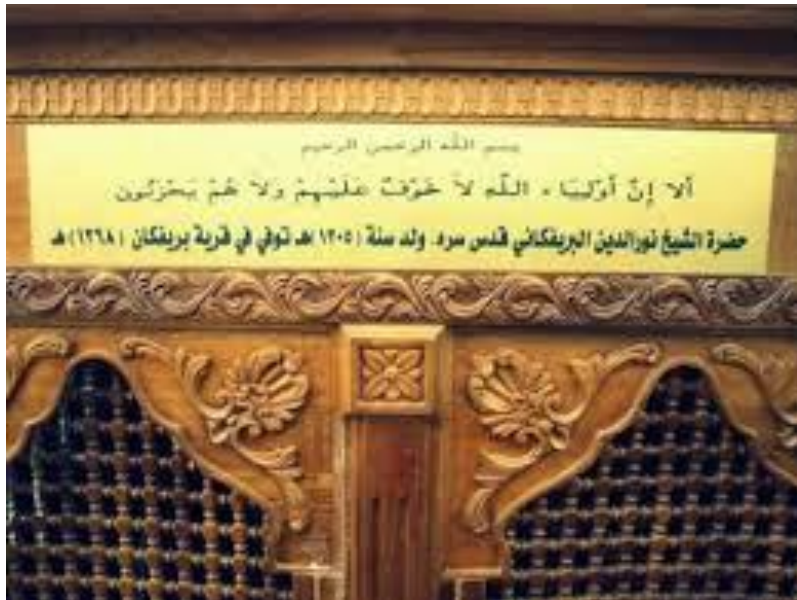 بسم الله الرحمن الرحيم
ألا إِنَّ أَوْلِيَاءَ اللَّهِ لاَ خَوْفٌ عَلَيْهِمْ وَلاَ هُمْ يَحْزَنُون
حضرة الشيخ نورالدين البريفكاني قدس سره. ولد سنة (١٢٠٥) هـ توفي في قرية بريفكان (١٢٦٨) هـ